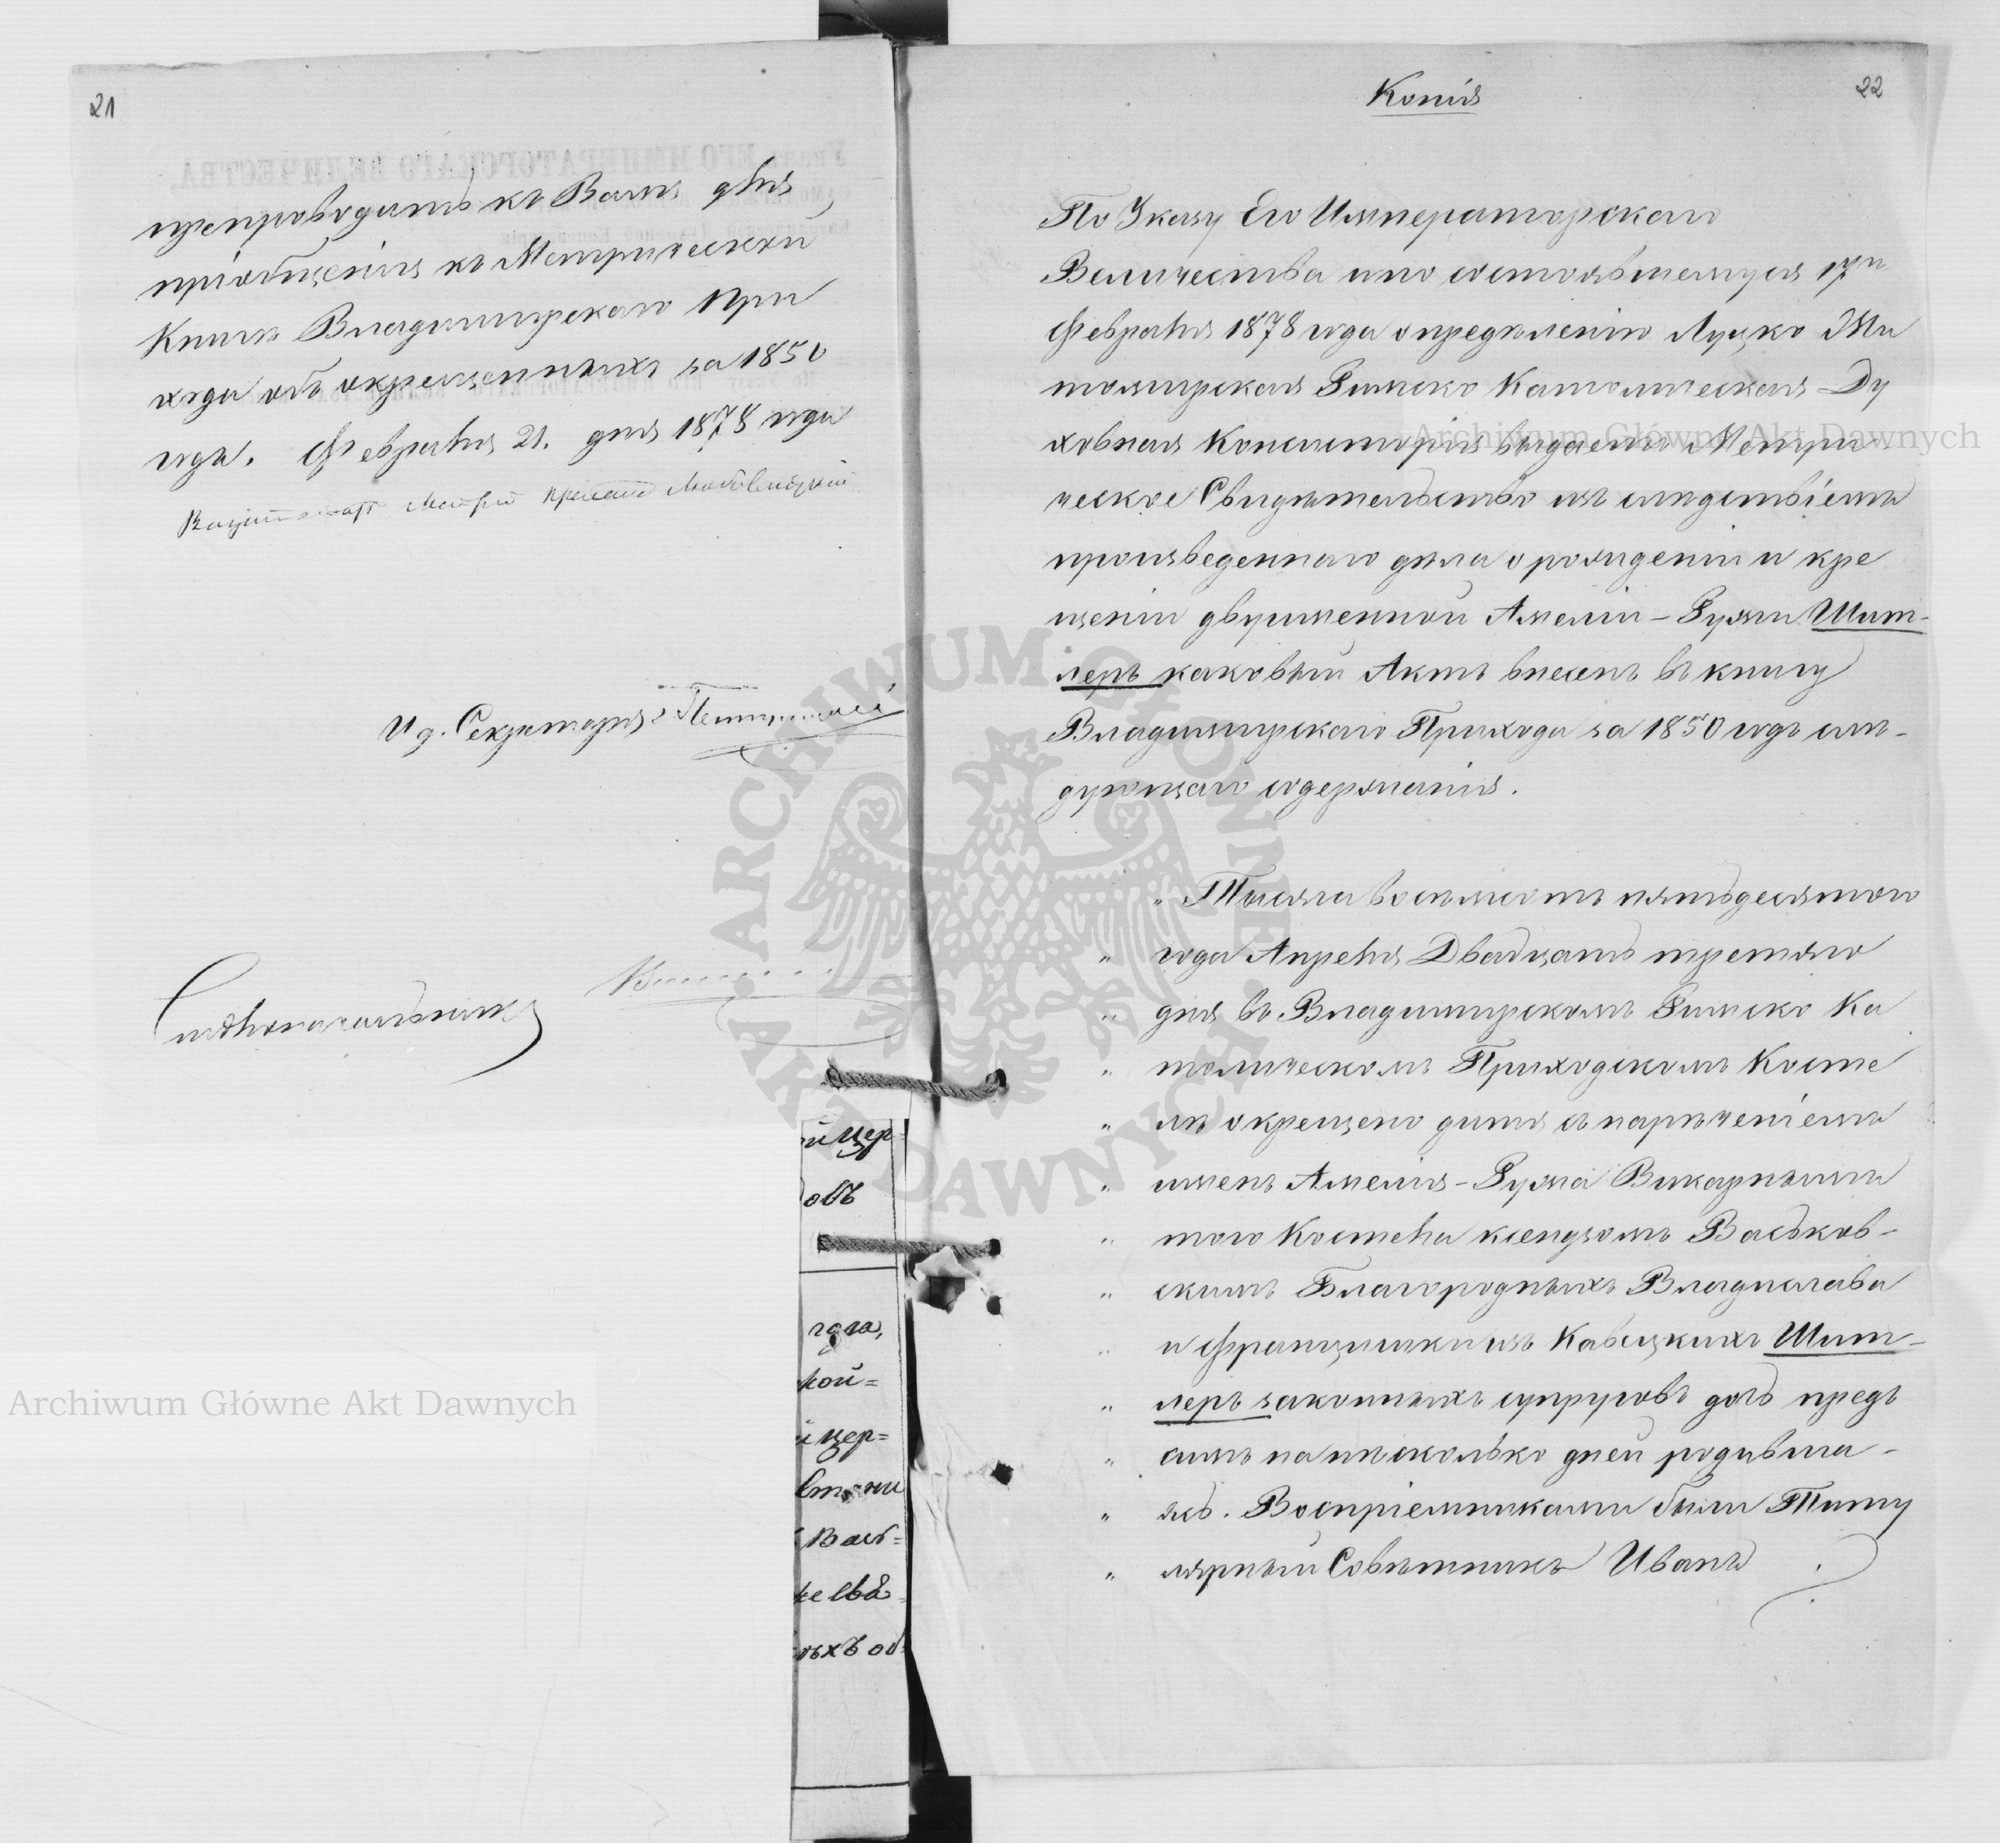 21
препроводить къ Вамъ для
пріобщенія къ Метрической
Книгѣ Владимірскаго При
хода объ окрещенныхъ за 1850
годъ. Февраля 21. дня 1878 года
И д. Секретаря
Столоначальникъ
й цер
объ
года,
кой=
й цер=
Вась=
ыхъ об
Копія
22
По Указу Его Императорскаго
Величества и по состоявшемуся 17го
Февраля 1878 года опредѣленію Луцко Жи
томирская Римско Католическая Ду
ховная Консисторія выдаетъ Метри
ческое Свидѣтельство изъ слѣдствіемъ
произведеннаго дѣла о рожденіи и кре
щеніи двуименной Амеліи-Рузыи Шит-
леръ каковый Актъ внесенъ въ книгу
Владимірскаго Прихода за 1850 годъ слѣ-
дующаго содержанія.
" Тысяча восемьсотъ пятьдесятого
" года Апрѣля Двадцать третяго
" дня въ Владимірскомъ Римско Ка
" толическомъ Приходскомъ Косте
" лѣ окрещено дитя съ нарѣченіемъ
" именъ Амелія-Рузыа Викарнымъ
" того Костела ксендзомъ Васьков-
" скимъ Благородныхъ Владислава
" и Францишки изъ Кавецкихъ Шит-
" леръ законныхъ супруговъ дочь предъ
" симъ на нѣсколько дней родивша-
" ясь. Воспріемниками были Титу
" лярный Совѣтникъ Иванъ
ARCHIWUM GŁÓWNE AKT DAWNYCH
Archiwum Główne Akt Dawnych
Archiwum Główne Akt Dawnych